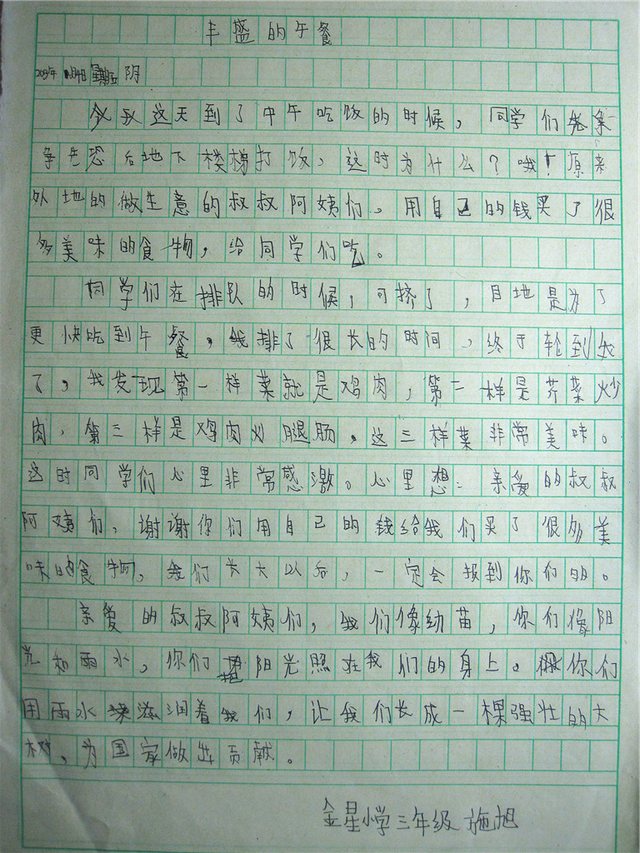 丰盛的午餐
阴
今天这天到了中午吃饭的时候，同学们
争先恐后地下楼梯打饭，这时为什么？哦！原来
外地的做生意的叔叔阿姨们，用自己的钱买了很
多美味的食物，给同学们吃。
同学们在排队的时候，可挤了，目地是为了
更快吃到午餐，我排了很长的时间，终于轮到我
了，我发现第一样菜就是鸡肉，第二样是芹菜炒
肉，第三样是鸡肉火腿肠，这三样菜非常美味。
这时同学们心里非常感激。心里想：亲爱的叔叔
阿姨们，谢谢你们用自己的钱给我们买了很多美
味的食物，我们长大以后，一定会报到你们的。
亲爱的叔叔阿姨们，我们像幼苗，你们像阳
光和雨水，你们把阳光照在我们的身上。你们
用雨水滋润着我们，让我们长成一棵强壮的大
树，为国家做出贡献。
金星小学三年级 施旭